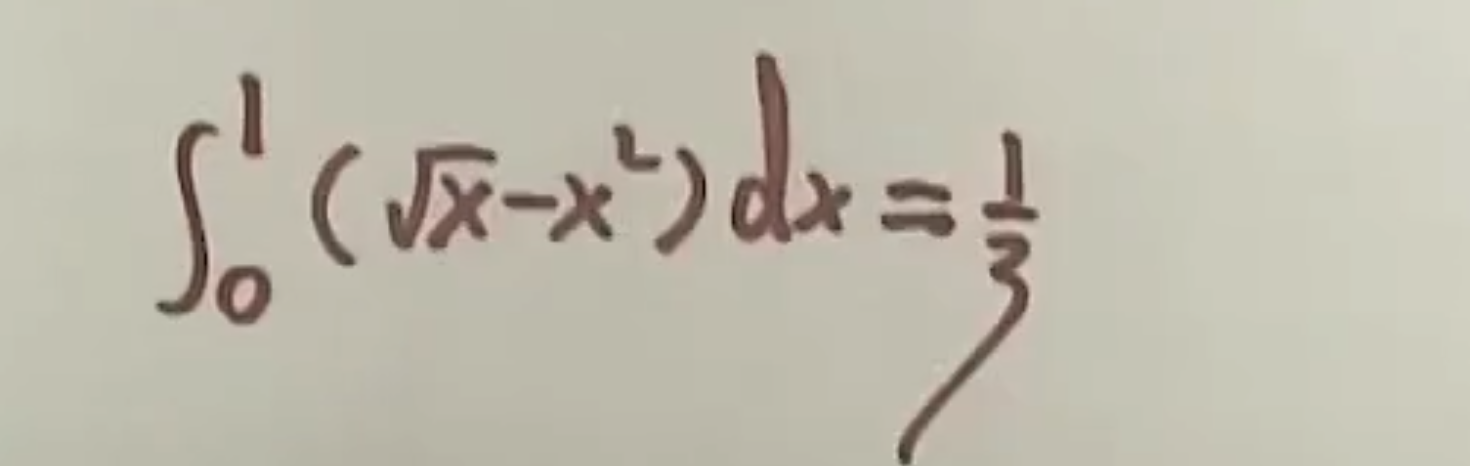 ∫₀¹ (√x - x²) dx = 1/3